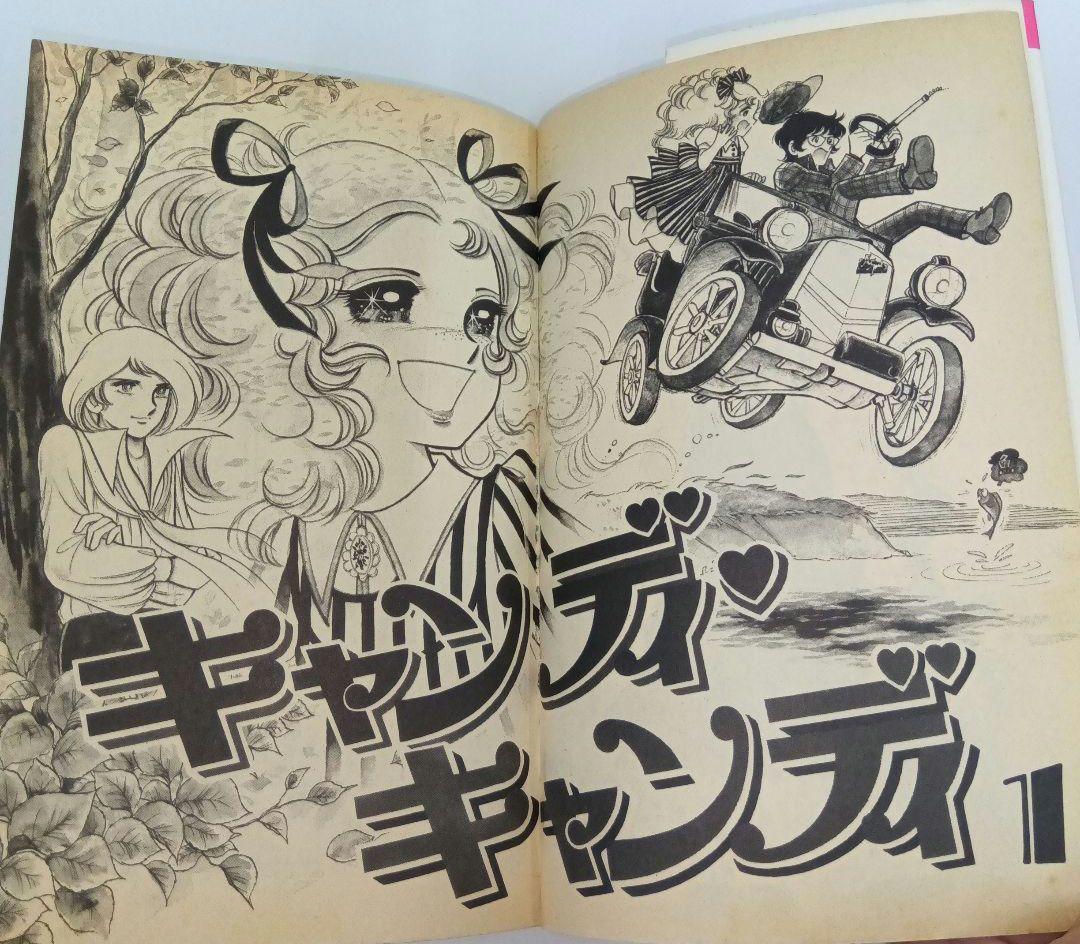 キャンディ♥
キャンディ1